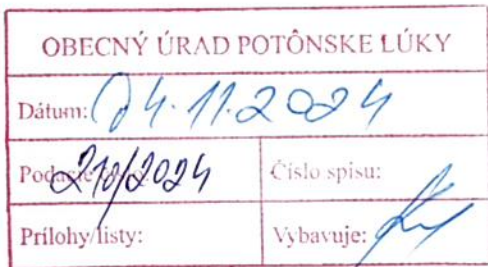 OBECNÝ ÚRAD POTÔNSKE LÚKY
Dátum: 04.11.2024
210/2024 Číslo spisu:
Prílohy/listy: Vybavuje: